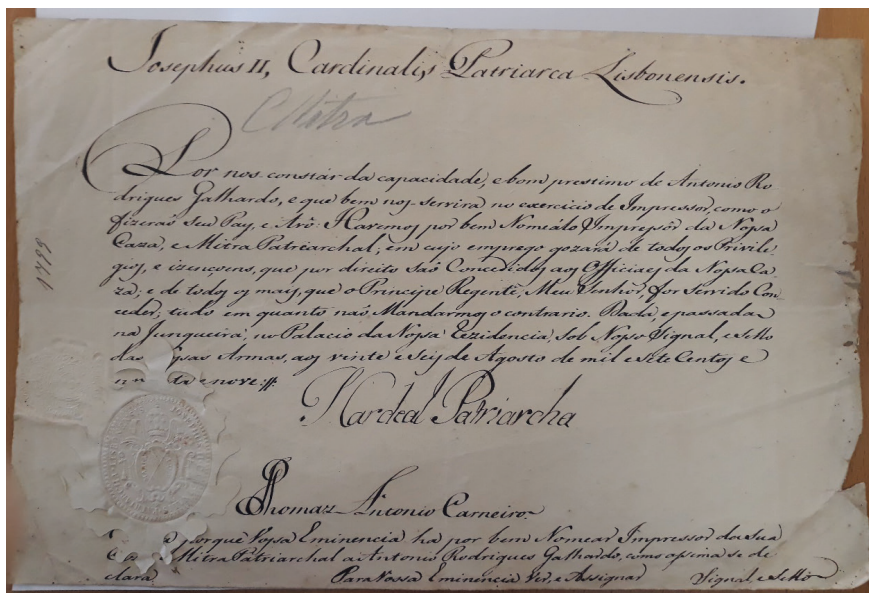 Josephus II, Cardinalis Patriarca Lisbonensis.
Mitra
Por nos constár da capacidade, e bom prestimo de Antonio Ro
drigues Galhardo, e que bem nos servirá no exercicio de Impressor, como o
fizeraõ seu Pay, e Avô: Havemos por bem Nomeálo Impressor da Nossa
Caza, e Mitra Patriarchal; em cujo emprego gozará de todos os Privile-
gios, e izencoens, que por direito saõ Concedidos aos Officiaes da Nossa Ca
za; e de todos os mais, que o Principe Regente, Meu Senhor, for servido Con
ceder; tudo em quanto naõ Mandarmos o contrario. Dada, e passada
na Junqueira, no Palacio da Nossa Rezidencia, sob Nosso Signal, e Sello
das Nossas Armas, aos vinte e seis de Agosto de mil e sete Centos e
e nove
1799
Cardeal Patriarcha
Thomaz Antonio Carneiro
porque Vossa Eminencia ha por bem Nomear Impressor da Sua
Mitra Patriarchal a Antonio Rodrigues Galhardo, como assima se de
clara
Para Vossa Eminencia Ver, e Assignar
Signal e Sello